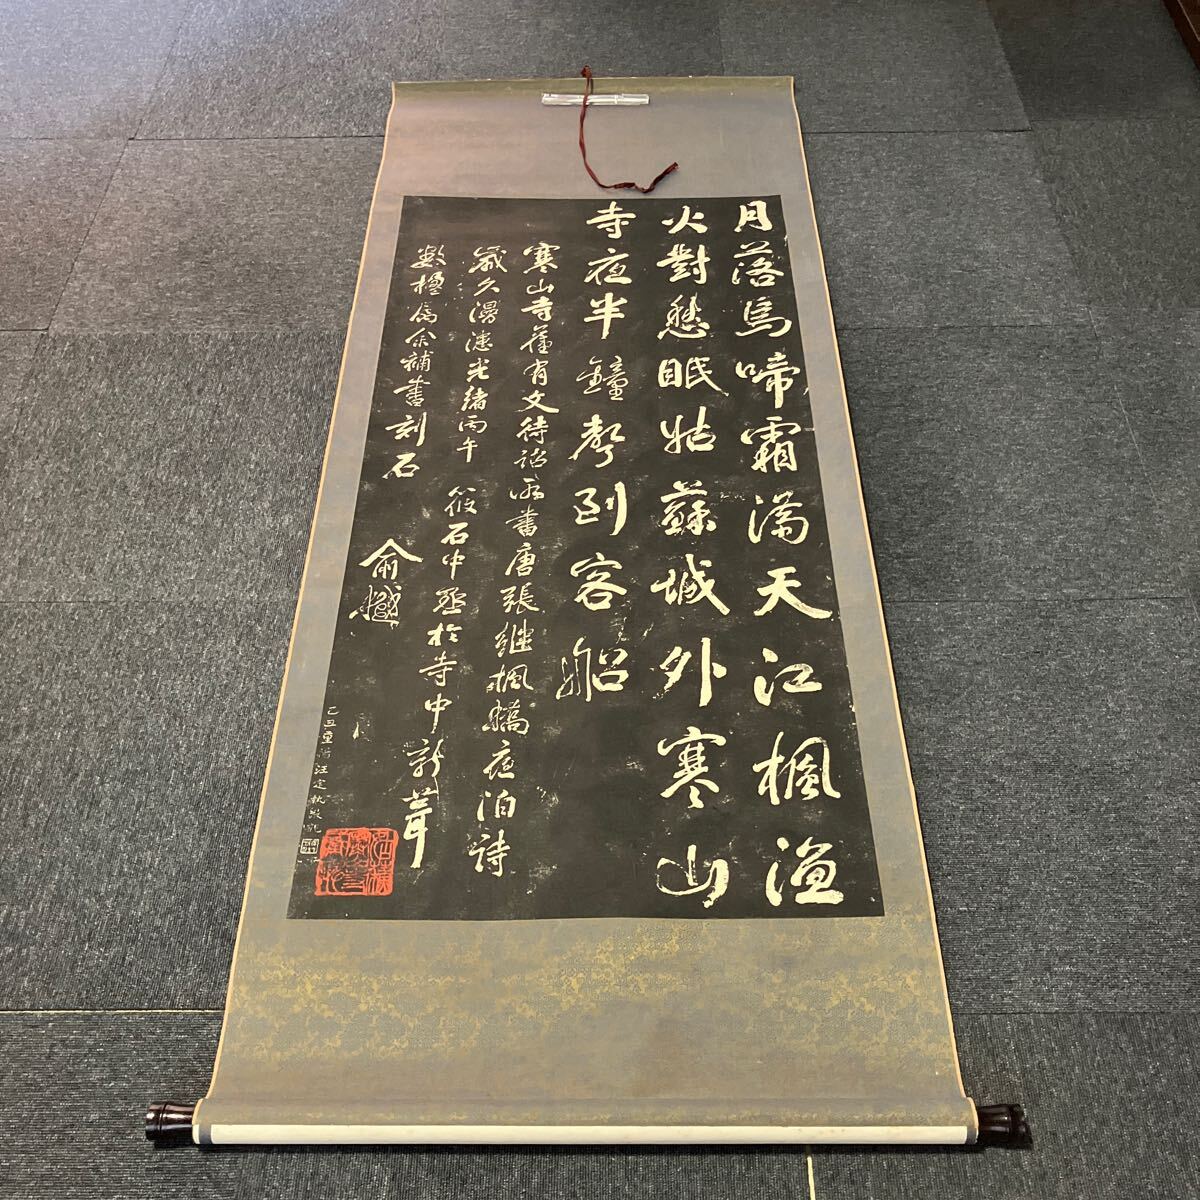 月落烏啼霜滿天江楓漁
火對愁眠姑蘇城外寒山
寺夜半鐘聲到客船
寒山寺舊有文待詔所書唐張繼楓橋夜泊詩
歲久漫漶光緒丙午筱石中丞於寺中新葺
數楹屬余補書刻石
俞樾
乙丑重